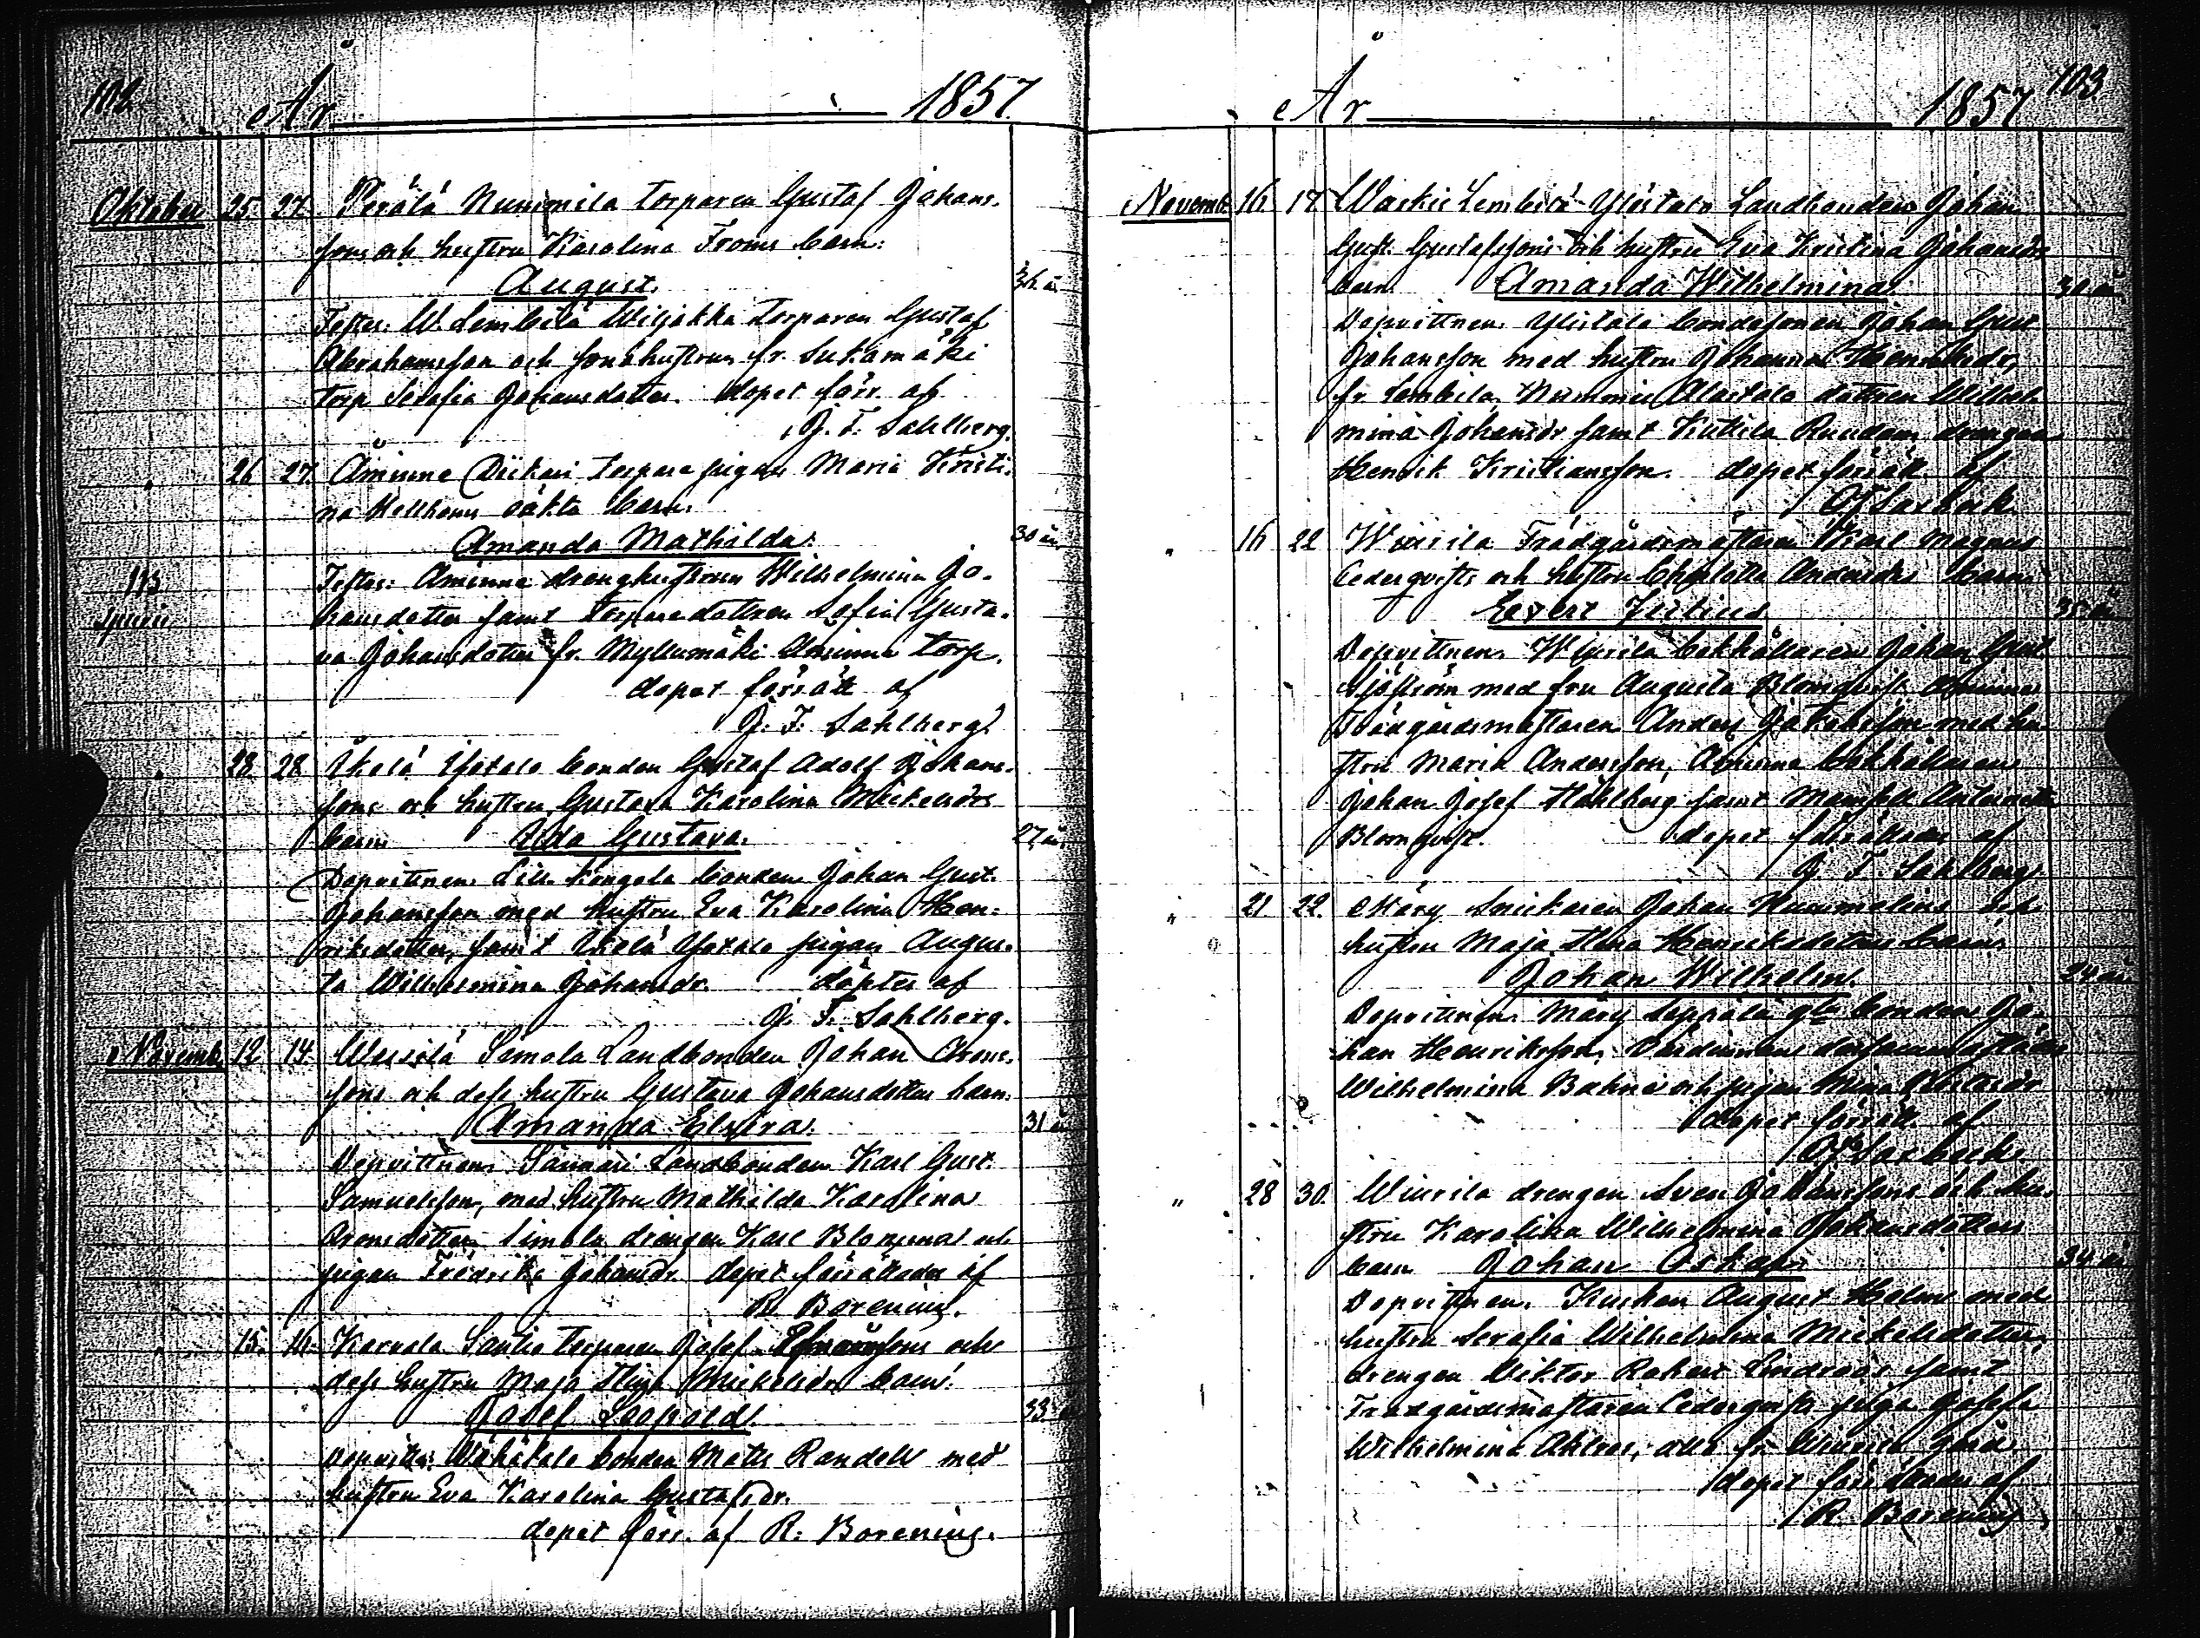 102
År 1857.
Oktober 25. 27. Perälä Nummila torparen Gustaf Johans-
sons och hustru Karolina Froms barn:
August. 36 år
Testes: W. Lembilä Wiljakka torparen Gustaf
Abrahamsson och sonahustrun fr. Sukamäki
torp Serafia Johansdotter. dopet förr. af
G. F. Sahlberg.
26. 27. Åminne torpare pigan Maria Kristi-
na Hellboms oäkta barn.
Amanda Mathilda. 30 år
Testes: Åminne drenghustrun Wilhelmina Jo-
spurii hansdotter samt torparedottren Sofia Gusta-
va Johansdotter fr. Myllumäki Åminne torp.
dopet förrätt af
G. F. Sahlberg.
28. 28. Ukelä Yotala bonden Gustaf Adolf Johans-
sons och hustru Gustava Karolina Mickelsdrs
barn Ida Gustava. 27 år
Dopvittnen. Lill Kongola bonden Johan Gust.
Johansson med hustru Eva Karolina Hen-
riksdotter, samt Ukelä Yotala pigan Augus-
ta Wilhelmina Johansdr. döptes af
G. F. Sahlberg.
Novemb. 12. 14. Simola Landbonden Johan Arons-
sons och dess hustru Gustava Johansdotters barn.
Amanda Elvira. 31 år
Dopvittnen. Sannari Landbonden Karl Gust.
Samuelsson, med hustru Mathilda Karolina
Aronsdotter, Simola drengen Karl och
pigan Fredrika Johansdr. dopet förrättades af
R. Borenius.
15. 16. Karvala Santio torparen Josef och
dess hustru Maja Stina Mickelsdrs barn:
Josef Leopold. 33 år
Dopvittn: bonden Matts Randell med
hustru Eva Karolina Gustafsdr.
dopet förr. af R. Borenius.
103
År 1857
Novemb. 16. 17. Waskio Lembilä Ylistalo Landbonden Johan
Gust. Gustafssons och hustru Eva Kristina Johansdrs
barn Amanda Wilhelmina.
Dopvittnen. Ylistalo bondesonen Johan Gust
Johansson med hustru Johanna Henriksdr,
fr. Lembilä, Nummis Alastalo dottren Wilhel-
mina Johansdr samt Kuttila drengen
Henrik Kristiansson. dopet förrätt. af

16 22 Wiurila Trädgårdsmästaren Karl Magnus
Cederqvists och hustru Charlotta Andersdrs barn
Evert Julius 35 år
Dopvittnen. Wiurila bokhållaren Johan Gust
Sjöström med fru Augusta Blomqvist, Åminne
Trädgårdsmästaren Anders Jakobsson med hu-
stru Maria Andersson, Åminne bokhållaren
Johan Josef Ståhlberg samt Mamsell
Blomqvist. dopet förrättades af
G. F. Sahlberg
" 21 22. Märy Snickaren Johan Nummelins och
hustru Maja Stina Henriksdotters barn.
Johan Wilhelm. 24 år
Dopvittnen. Märy Seppälä bonden Jo-
han Henriksson,
Wilhelmina och pigan Mina
dopet förrätt. af

" 28 30. Wiurila drengen Sven Johanssons och hu-
stru Karolina Wilhelmina Johansdotters
barn Johan Oskar 34 år
Dopvittnen. Kusken August Holm med
hustru Serafia Wilhelmina Mickelsdotter,
drengen Viktor Robert samt
Trädgårdsmästaren Cederqvists piga Josefa
Wilhelmina Ahlros, alla fr. Wiurila gård
dopet förrättades af
R. Borenius